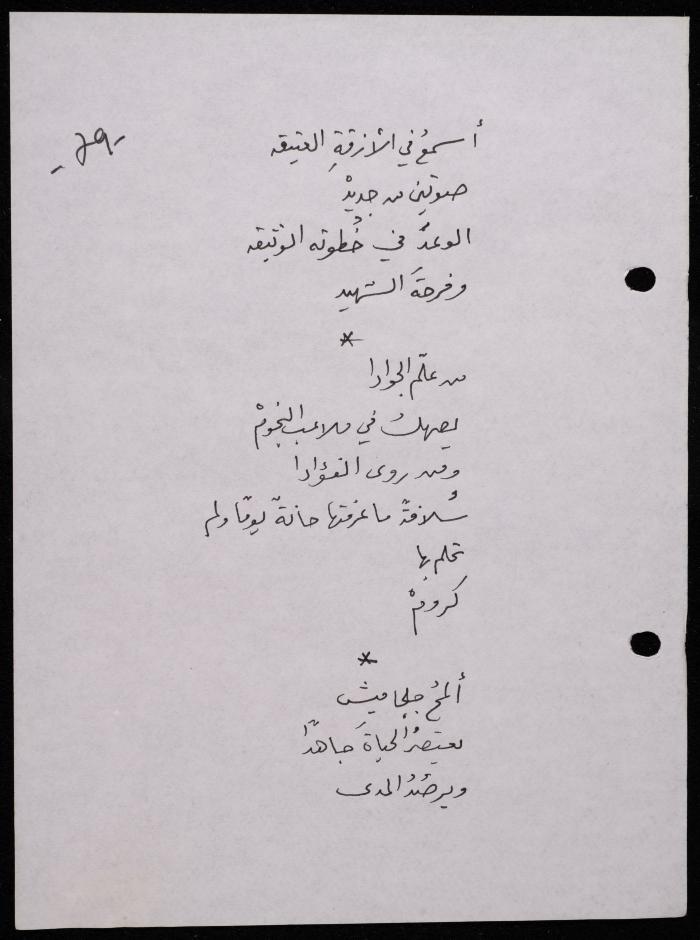 -٦٩-
أسمعُ في الأزقةِ العتيقه
صوتين من جديدْ
الوعدُ في خُطوته الوثيقه
وفرحةَ الشهيد
*
من علّم الجوادا
يصهلُ في ملاعب النجومْ
ومن روى الفؤادا
سُلافةً ما عرفتها حانةٌ يومًا ولم
تحلم بها
كرومْ
*
ألمحُ جلجاميش
يعتصرُ الحياةَ جاهدًا
ويرصُدُ المدى